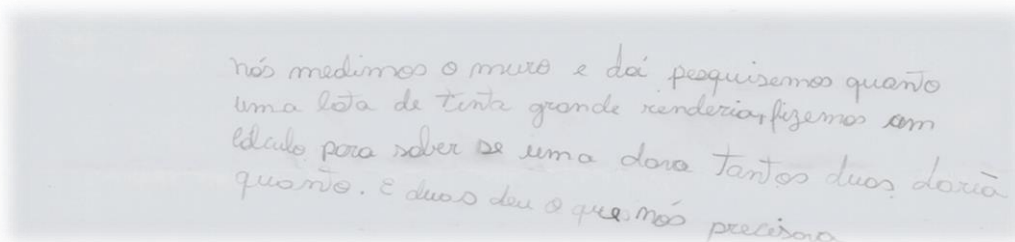 nós medimos o muro e daí pesquisemos quanto
uma lata de tinta grande renderia, fizemos um
cálculo para saber se uma dava tantos duas daria
quanto. E duas deu o que nós precisava